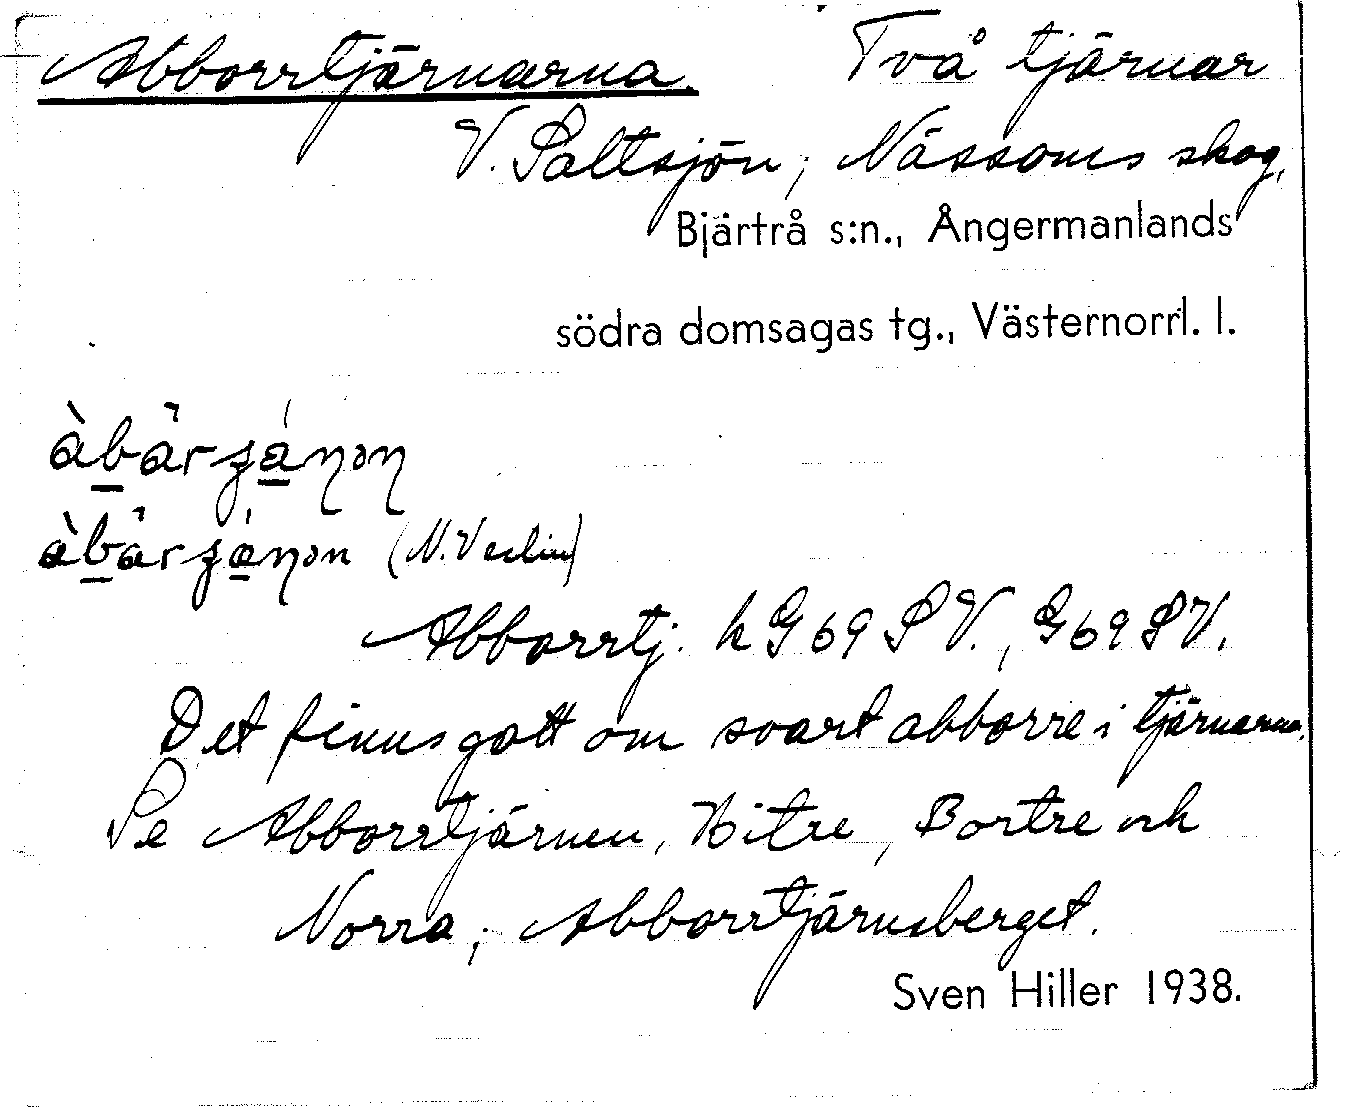 Abborrtjärnarna. Två tjärnar
V. Saltsjön, Nässoms skog,
Bjärtrå s:n., Ångermanlands
södra domsagas tg., Västernorrl. l.
(N. Vedin)
Abborrtj. k G 69 S V., G 69 S V.
Det finns gott om svart abborre i tjärnarna.
Se Abborrtjärnen, Hitre, Bortre och
Norra; Abborrtjärnsberget.
Sven Hiller 1938.